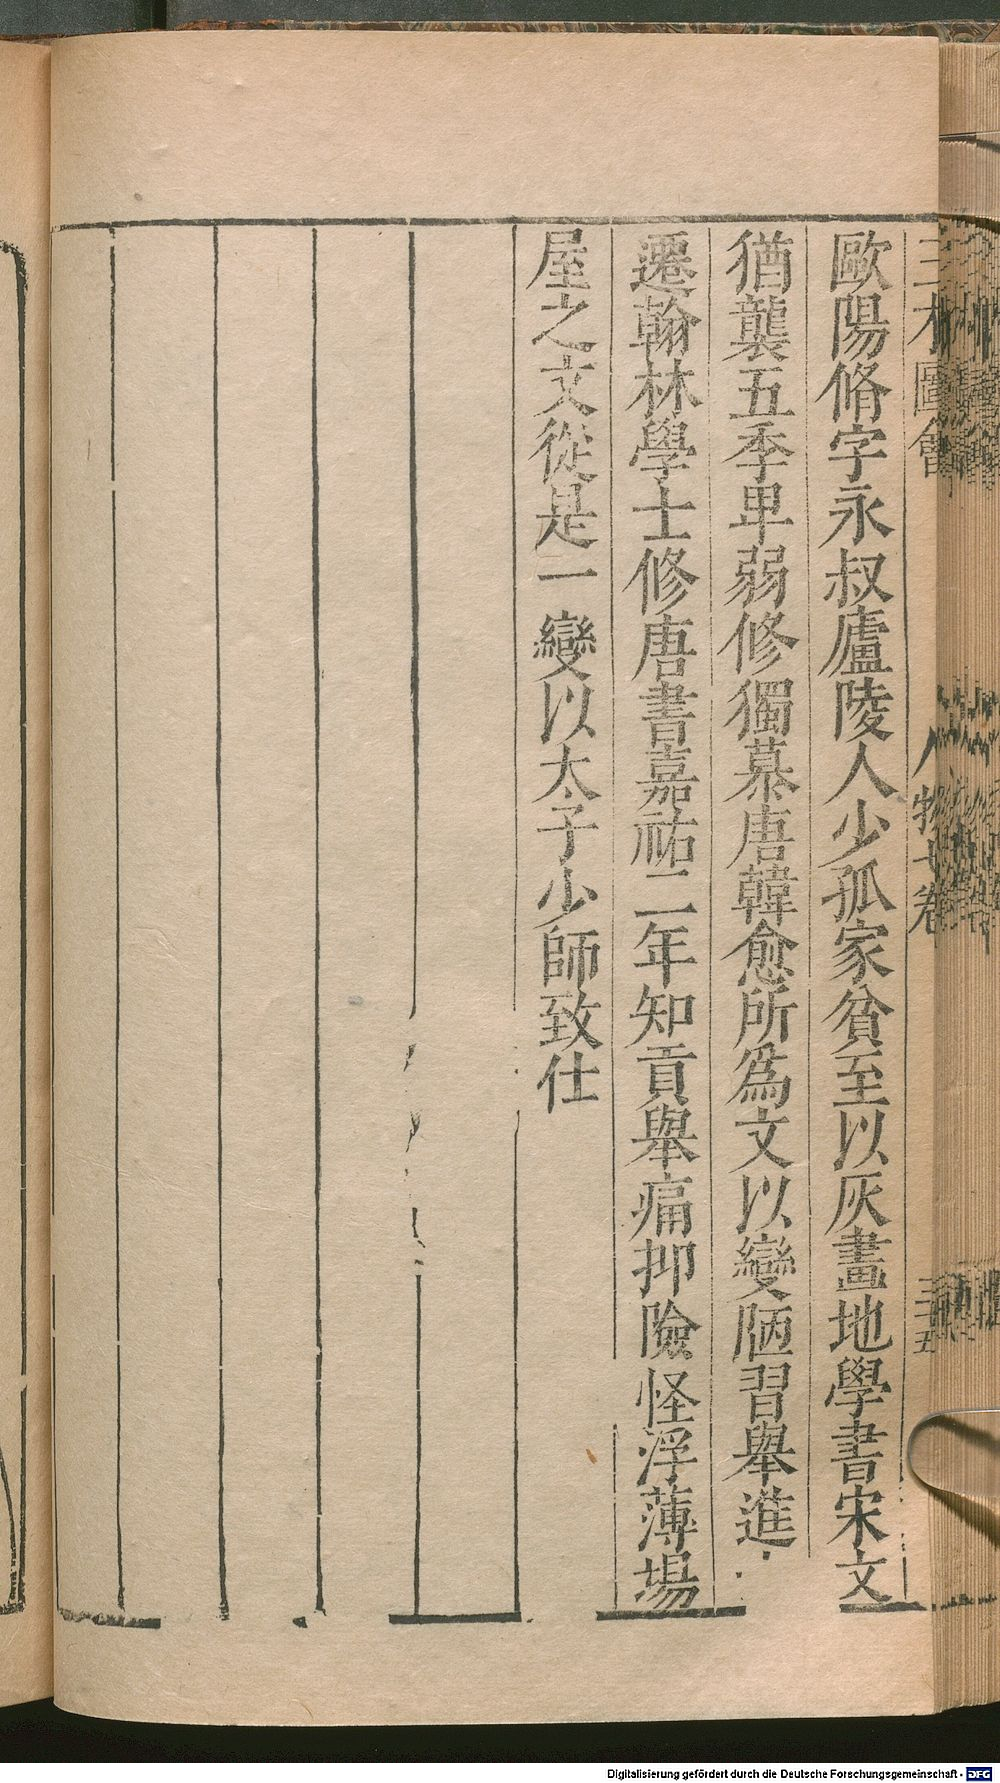 三才圖會 人物七卷 三十五
歐陽脩字永叔廬陵人少孤家貧至以灰畫地學書宋文
猶襲五季卑弱修獨慕唐韓愈所爲文以變陋習舉進
遷翰林學士修唐書嘉祐二年知貢舉痛抑險怪浮薄場
屋之文從是一變以太子少師致仕
Digitalisierung gefördert durch die Deutsche Forschungsgemeinschaft - DFG